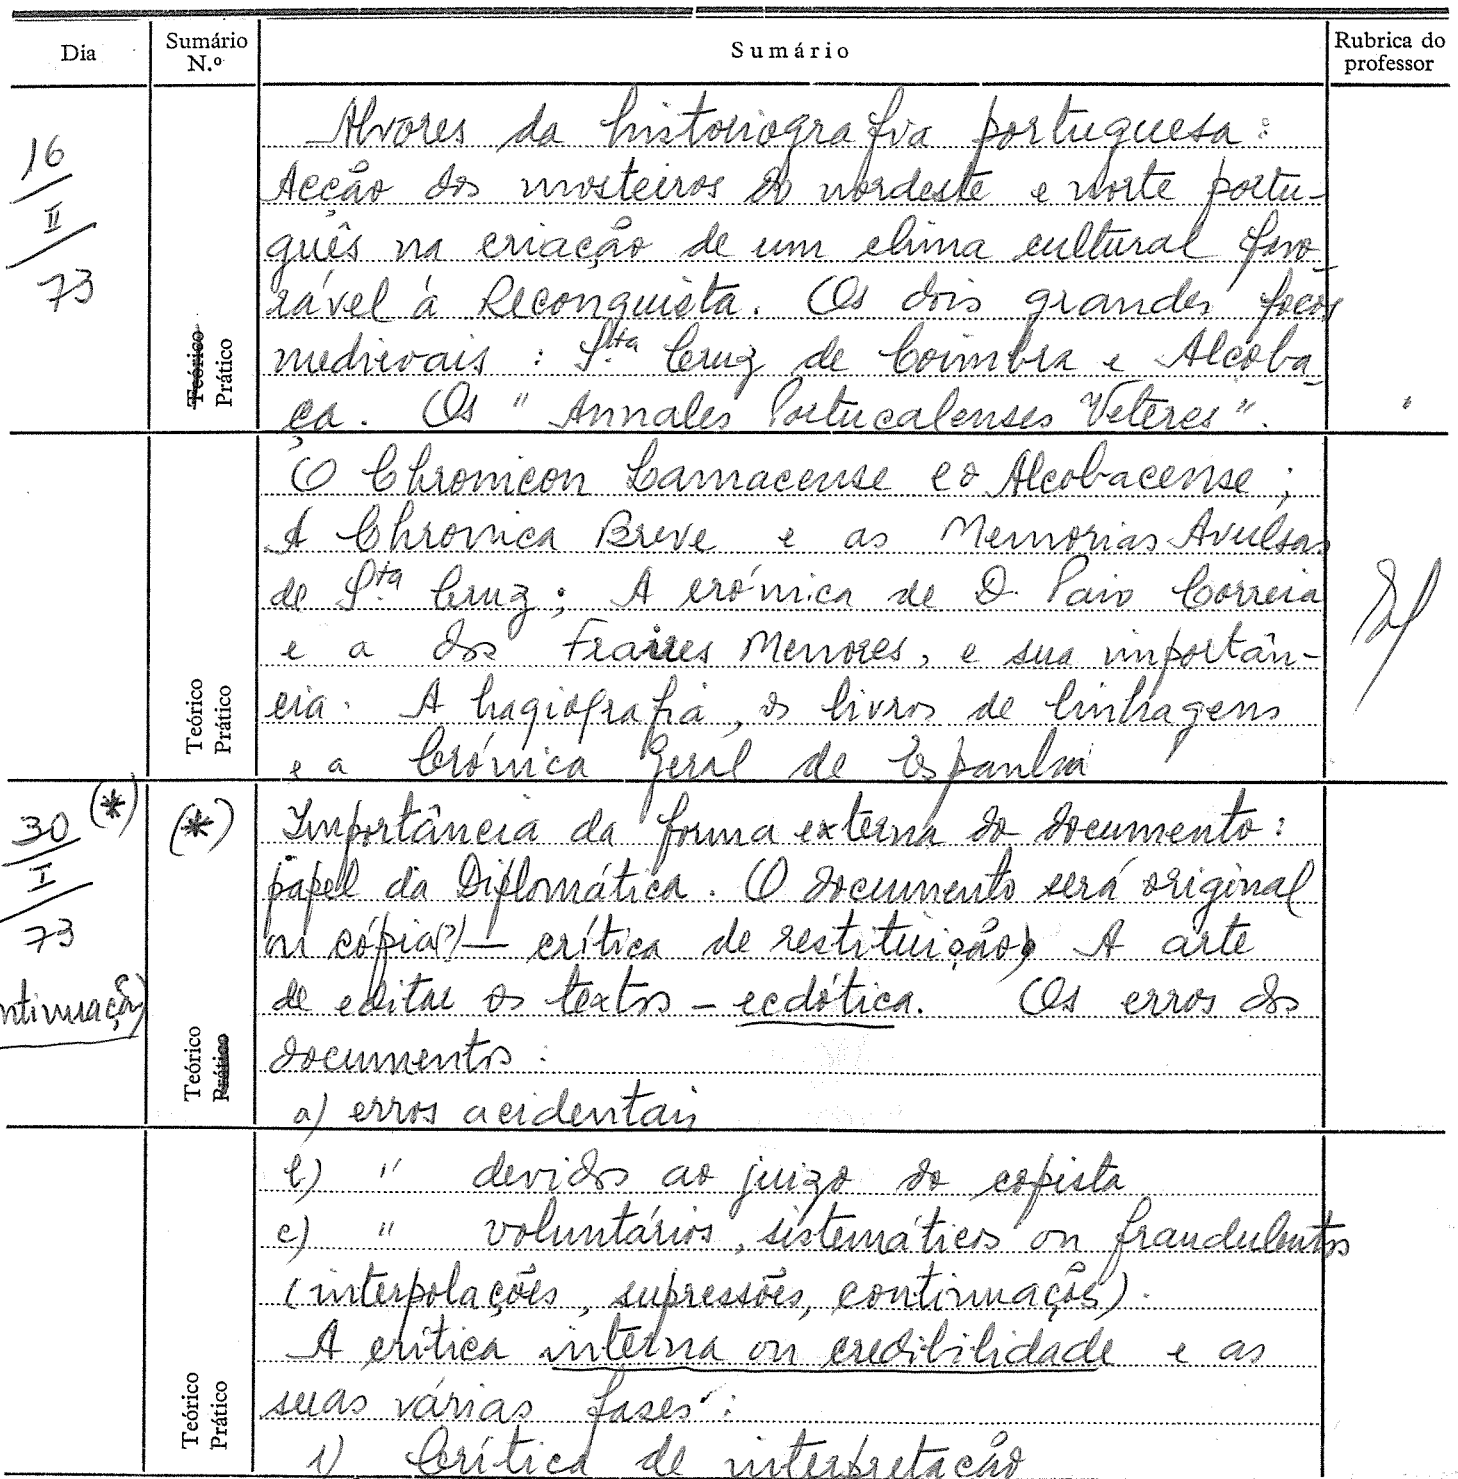 Dia
Sumário N.º
Sumário
Rubrica do professor
16
II
73
Teórico
Prático
Alvores da historiografia portuguesa:
Acção dos mosteiros do nordeste e norte portu-
guês na criação de um clima cultural favo-
rável à Reconquista. Os dois grandes focos
medievais: Sta Cruz de Coimbra e Alcoba-
ça. Os "Annales Portucalenses Veteres".
Teórico
Prático
O Chronicon Lamacense e o Alcobacense;
A Chronica Breve e as Memorias Avulsas
de Sta Cruz; A crónica de D. Paio Correia
e a dos Frades Menores, e sua importân-
cia. A hagiografia, os livros de linhagens
e a Crónica Geral de Espanha
30 (*)
I
73
ntinuação)
(*)
Teórico
Prático
Importância da forma externa do documento:
papel da Diplomática. O documento será original
ou cópia(?) — crítica de restituição; A arte
de editar os textos - ecdótica. Os erros dos
documentos:
a) erros acidentais
Teórico
Prático
b) " devidos ao juizo do copista
c) " voluntários, sistemáticos ou fraudulentos
(interpolações, supressões, continuações).
A crítica interna ou credibilidade e as
suas várias fases:
1) Crítica de interpretação